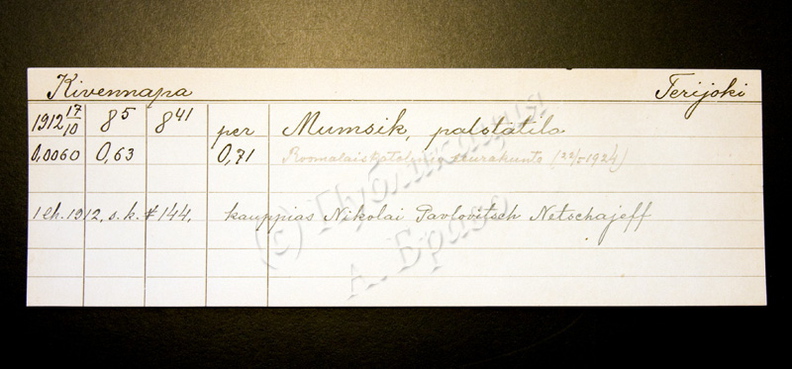 Kivennapa Terijoki
1912 17/10 8⁵ 8⁴¹ per Mumsik, palstatila
0,0060 0,63 0,71 Roomalaiskatol. seurakunta (22/5 1924)
1 eh. 1912, s.k. # 144. kauppias Nikolai Pavlovitsch Netschajeff
(c) Публикация
А. Браво